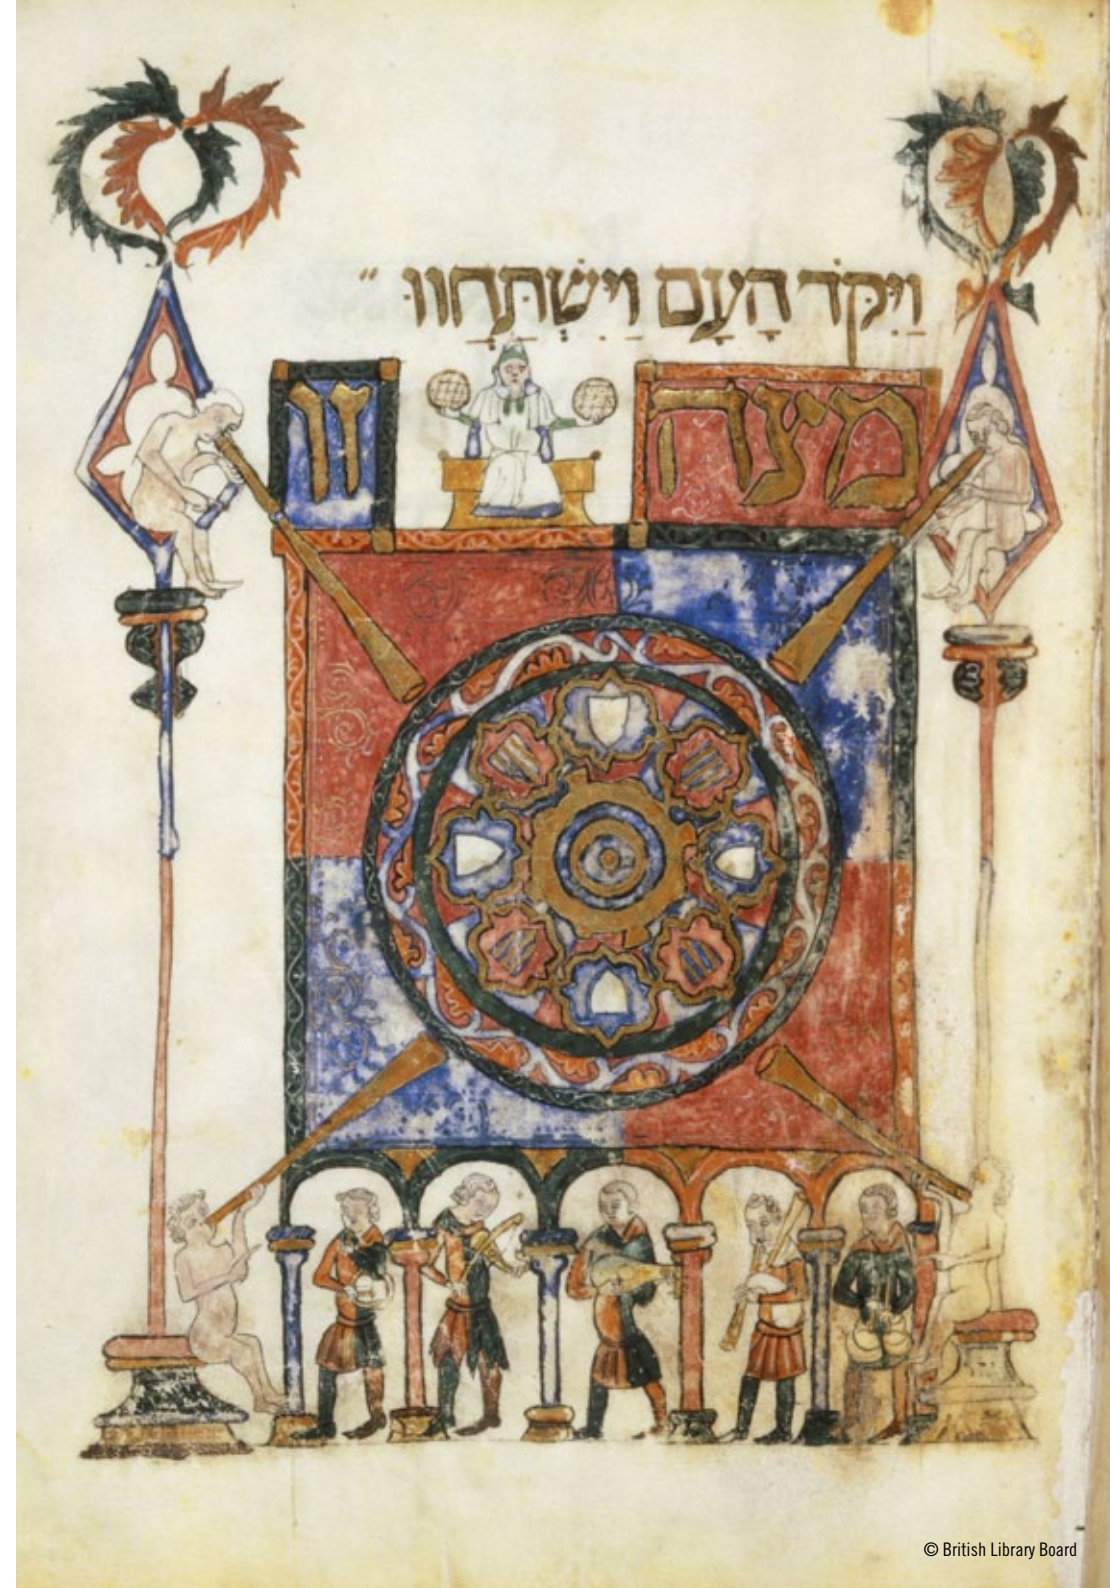 וַיִּקֹּד הָעָם וַיִּשְׁתַּחֲווּ ״
מצה זו
© British Library Board